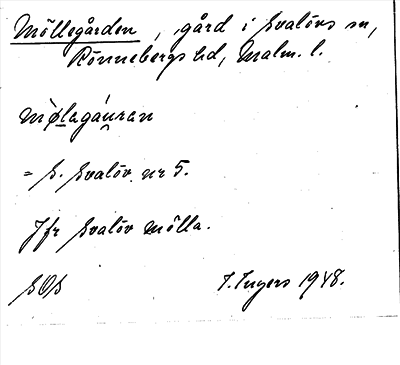 Möllegården, gård i Svalövs sn,
Rönnebergs hd, Malm. l.
møl̀agáuran
= S. Svalöv nr 5.
Jfr Svalöv mölla.
SOS I. Ingers 1948.